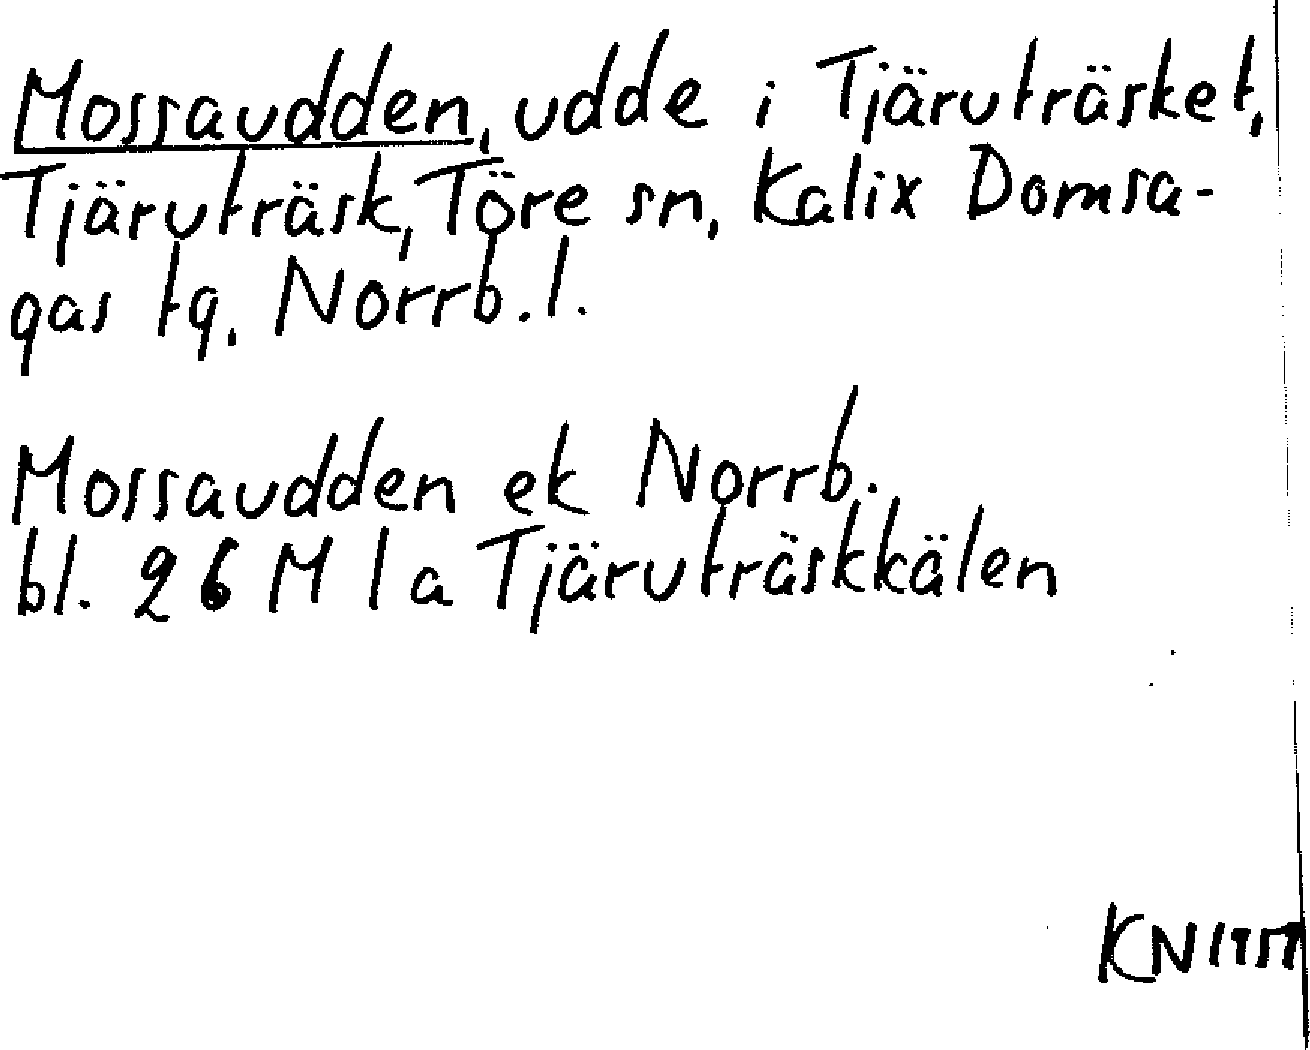 Mossaudden, udde i Tjäruträsket,
Tjäruträsk, Töre sn, Kalix Domsa-
gas tg, Norrb.l.
Mossaudden ek Norrb.
bl. 26 M 1 a Tjäruträskkälen
KN